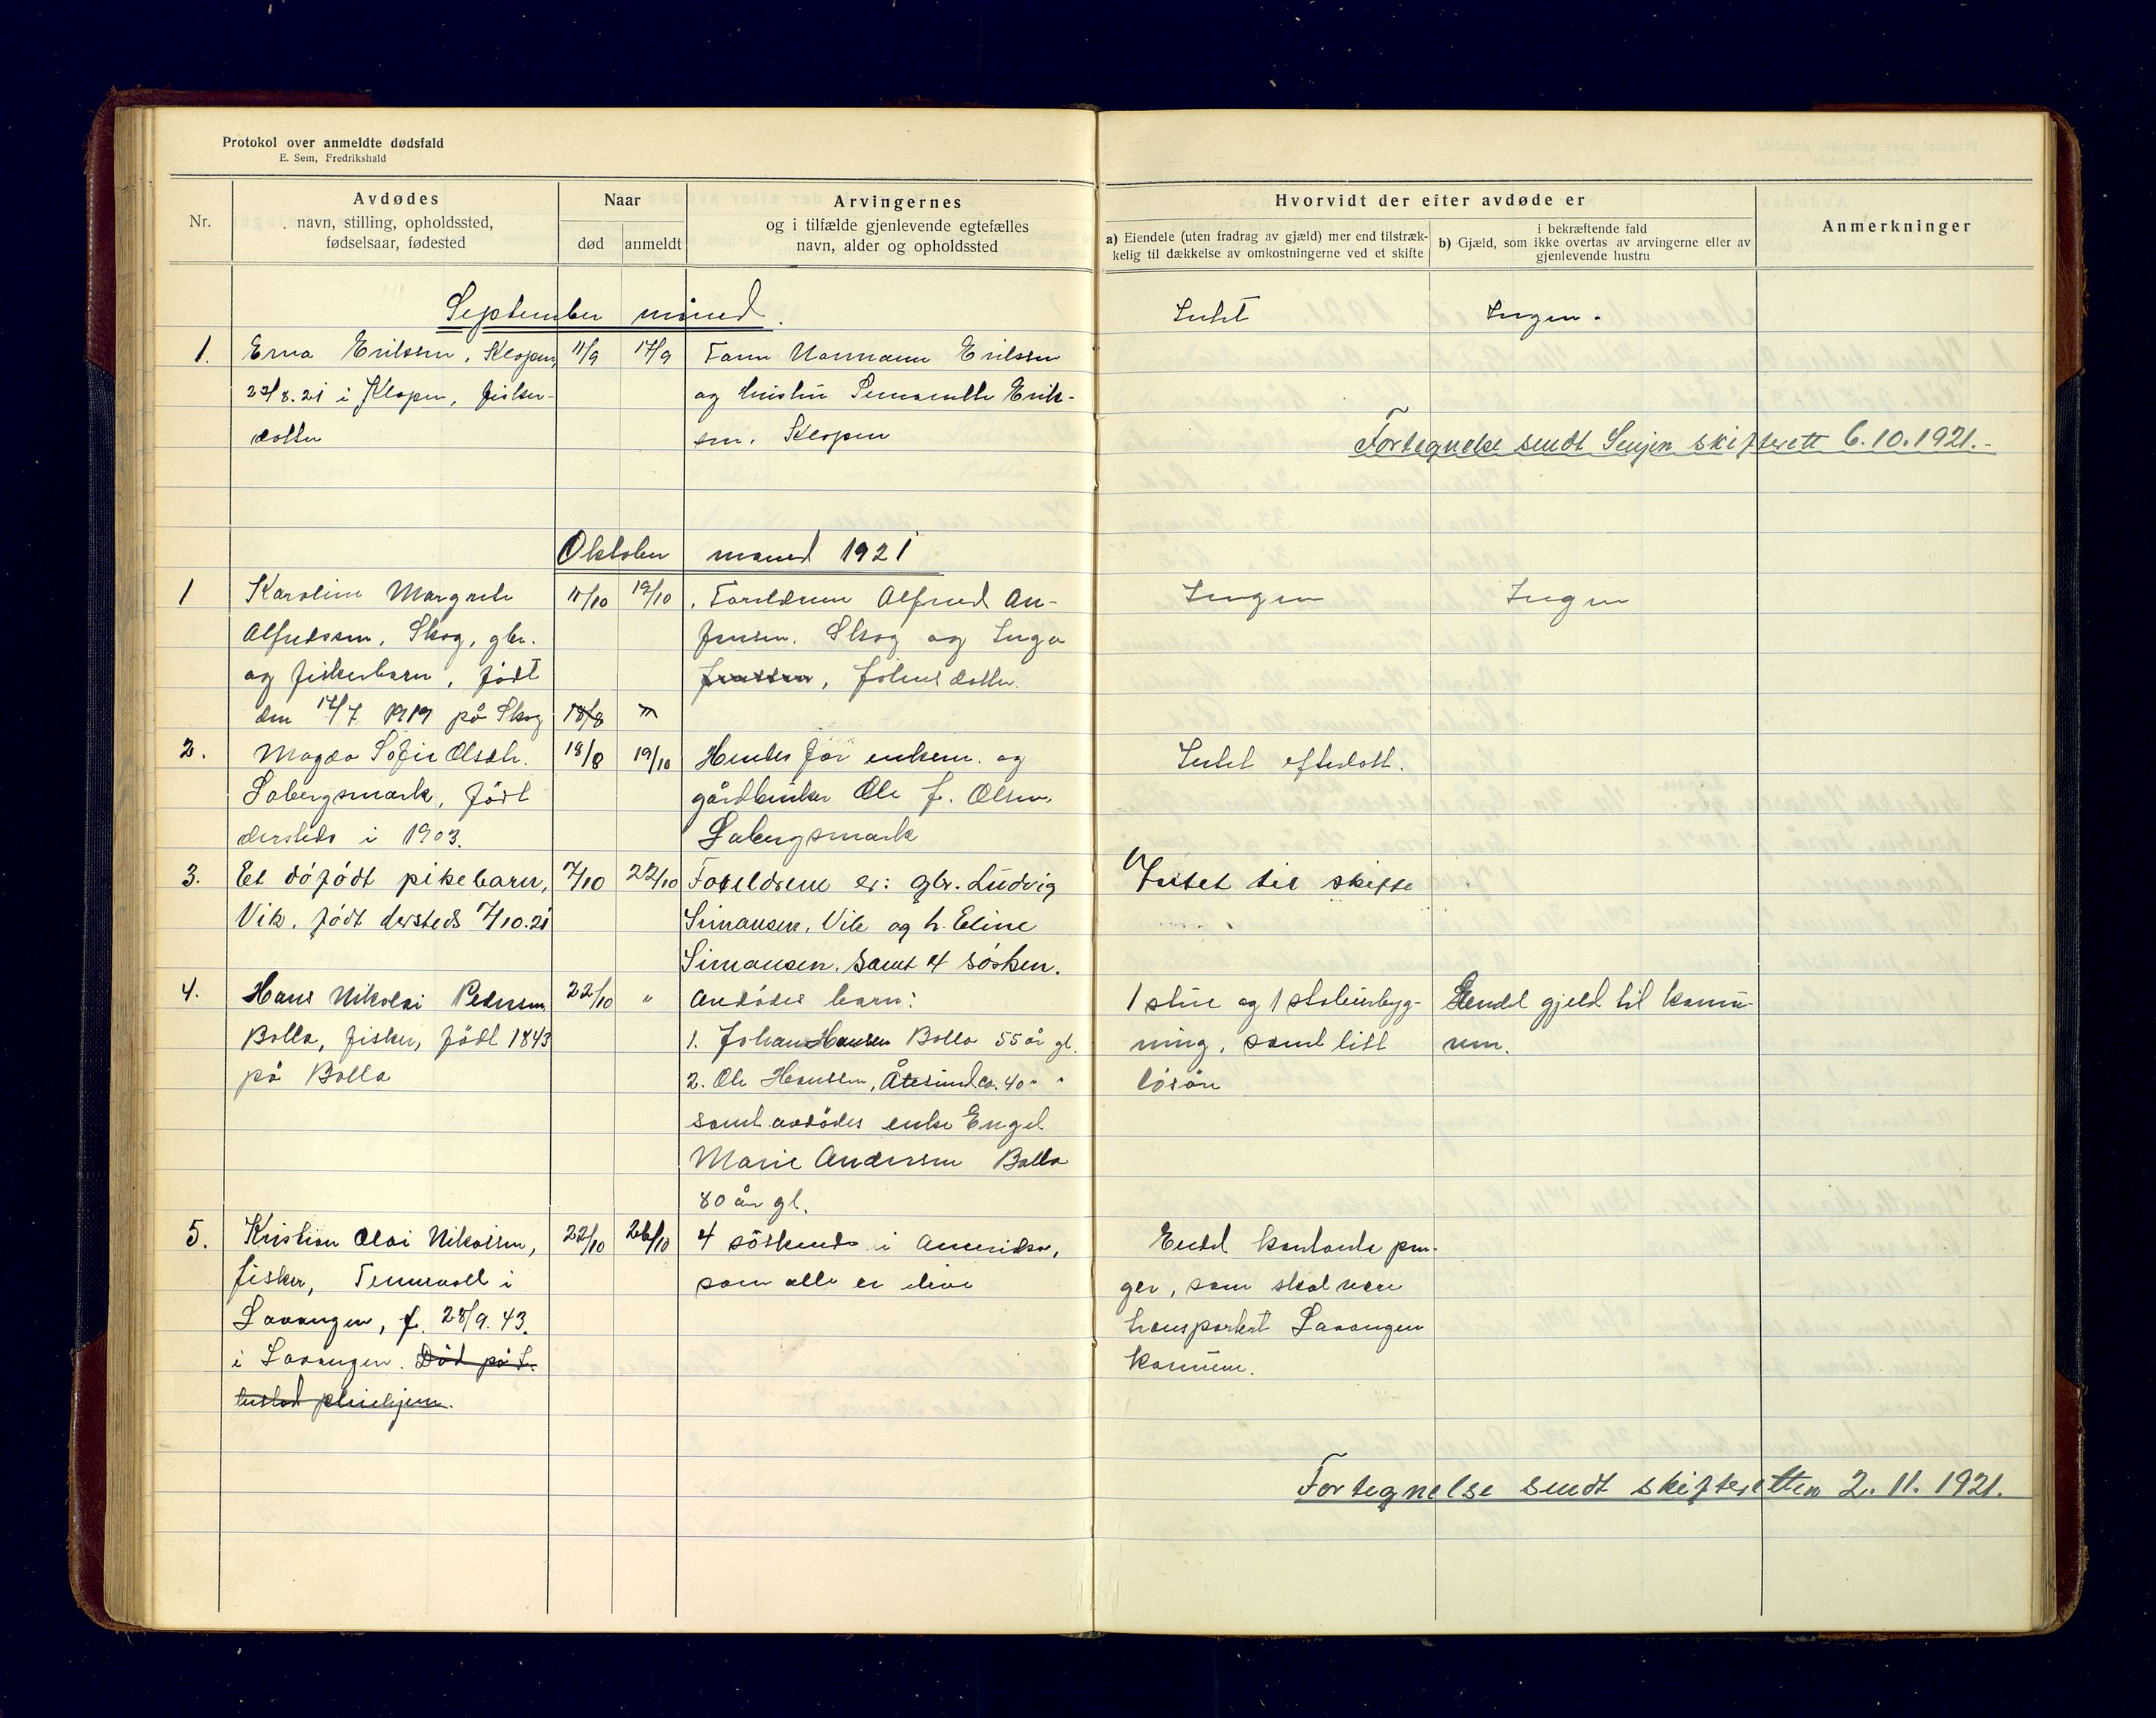 Protokol over anmeldte dødsfald
E. Sem, Fredrikshald
Nr.
Avdødes
navn, stilling, opholdssted,
fødselsaar, fødested
Naar
død
anmeldt
Arvingernes
og i tilfælde gjenlevende egtefælles
navn, alder og opholdssted
Hvorvidt der efter avdøde er
a) Eiendele (uten fradrag av gjæld) mer end tilstræk-
kelig til dækkelse av omkostningerne ved et skifte
i bekræftende fald
b) Gjæld, som ikke overtas av arvingerne eller av
gjenlevende hustru
Anmerkninger
September måned.
Intet
Ingen.
1. Erna Erikssen, Klopen, 11/9 17/9 Normann Erikssen
22/8.21 i Klopen, fisker- og hustru Erik-
datter sen, Klopen
Fortegnelse sendt Senjen skifterett 6.10.1921.-
Oktober måned 1921
1 Karoline Margrete 11/10 19/10 Foreldrene Alfred An- Ingen Ingen
Alfredsen, Skog, gbr. Skog og Inga
og fiskerbarn, født Johnsdatter.
den 14/7 1919 på Skog 18/8
2. Magda Sofie Olsdtr. 18/8 19/10 Hendes far enkem. og Intet efterlatt.
Løbergsmark, født gårdbruker Ole J. Olsen,
dersteds i 1903. Løbergsmark
3. Et döfödt pikebarn, 7/10 22/10 Foreldrene er: gbr. Ludvig Intet til skifte
Vik, födt dersteds 7/10.21 Simonsen, Vik og h. Eline
Simonsen, samt 4 sösken.
4. Hans Nikolai Pedersen 22/10 " Avdödes barn: 1 stue og 1 stoleirbyg- Endel gjeld til kommu-
Bolla, fisker, födt 1843 1. Johan Hansen Bolla 55 år gl. ning, samt litt nen.
på Bolla 2. Ole Hanssen, Ålesund ca. 40 " " lösöre
samt avdödes enke Engel
Marie Andersen Bolla
80 år gl.
5. Kristian Olai Nikolisen, 22/10 26/10 4 söskende i Amerika, Endel kontante pen-
fisker, Tennevoll i som alle er i live ger, som skal være
Lavangen, f. 28/9.43. transportert Lavangen
i Lavangen. Död på kommune.
pleiehjem.
Fortegnelse sendt skifteretten 2.11.1921.